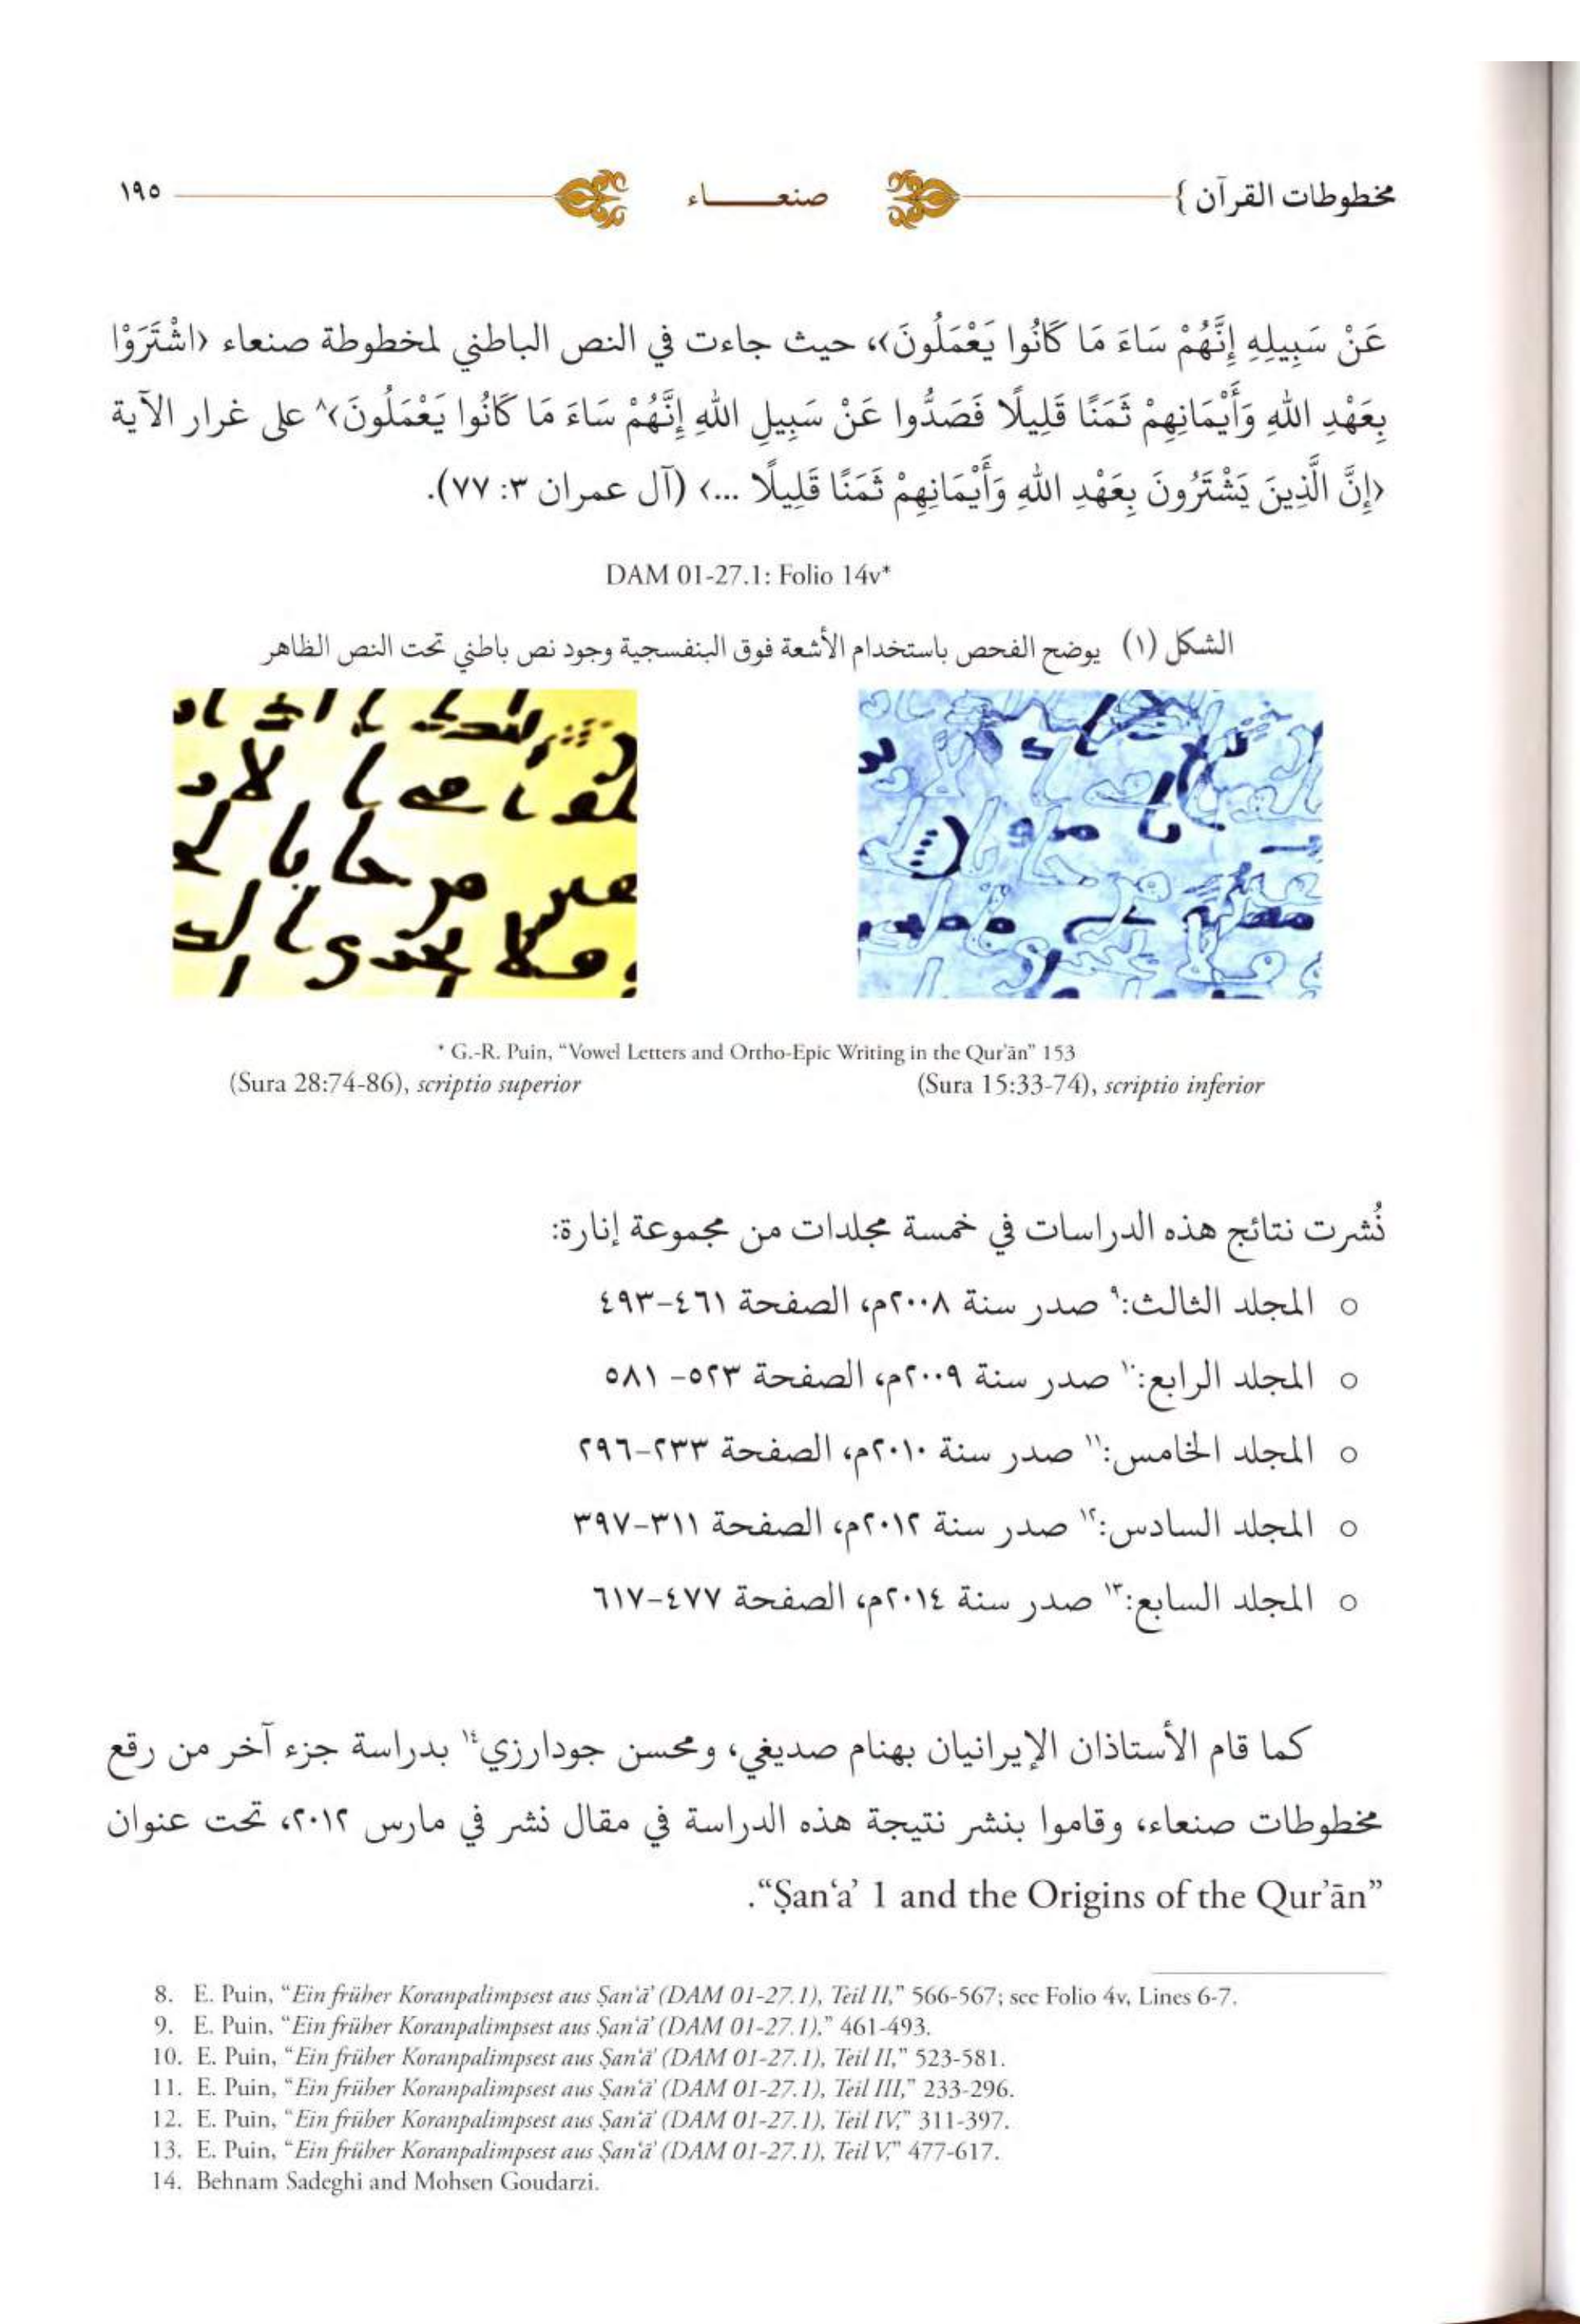 مخطوطات القرآن } صنعـــــاء ١٩٥
عَنْ سَبِيلِهِ إِنَّهُمْ سَاءَ مَا كَانُوا يَعْمَلُونَ›، حيث جاءت في النص الباطني لمخطوطة صنعاء ‹اشْتَرَوْا
بِعَهْدِ اللهِ وَأَيْمَانِهِمْ ثَمَنًا قَلِيلًا فَصَدُّوا عَنْ سَبِيلِ اللهِ إِنَّهُمْ سَاءَ مَا كَانُوا يَعْمَلُونَ›٨ على غرار الآية
‹إِنَّ الَّذِينَ يَشْتَرُونَ بِعَهْدِ اللهِ وَأَيْمَانِهِمْ ثَمَنًا قَلِيلًا ...› (آل عمران ٣: ٧٧).
DAM 01-27.1: Folio 14v*
الشكل (١) يوضح الفحص باستخدام الأشعة فوق البنفسجية وجود نص باطني تحت النص الظاهر
* G.-R. Puin, “Vowel Letters and Ortho-Epic Writing in the Qur’ān” 153
(Sura 28:74-86), scriptio superior (Sura 15:33-74), scriptio inferior
نُشرت نتائج هذه الدراسات في خمسة مجلدات من مجموعة إنارة:
○ المجلد الثالث:٩ صدر سنة ٢٠٠٨م، الصفحة ٤٦١-٤٩٣
○ المجلد الرابع:١٠ صدر سنة ٢٠٠٩م، الصفحة ٥٢٣- ٥٨١
○ المجلد الخامس:١١ صدر سنة ٢٠١٠م، الصفحة ٢٣٣-٢٩٦
○ المجلد السادس:١٢ صدر سنة ٢٠١٢م، الصفحة ٣١١-٣٩٧
○ المجلد السابع:١٣ صدر سنة ٢٠١٤م، الصفحة ٤٧٧-٦١٧
كما قام الأستاذان الإيرانيان بهنام صديغي، ومحسن جودارزي١٤ بدراسة جزء آخر من رقع
مخطوطات صنعاء، وقاموا بنشر نتيجة هذه الدراسة في مقال نشر في مارس ٢٠١٢، تحت عنوان
.“Ṣan‘a’ 1 and the Origins of the Qur’ān”
8. E. Puin, “Ein früher Koranpalimpsest aus Ṣan‘ā’ (DAM 01-27.1), Teil II,” 566-567; see Folio 4v, Lines 6-7.
9. E. Puin, “Ein früher Koranpalimpsest aus Ṣan‘ā’ (DAM 01-27.1),” 461-493.
10. E. Puin, “Ein früher Koranpalimpsest aus Ṣan‘ā’ (DAM 01-27.1), Teil II,” 523-581.
11. E. Puin, “Ein früher Koranpalimpsest aus Ṣan‘ā’ (DAM 01-27.1), Teil III,” 233-296.
12. E. Puin, “Ein früher Koranpalimpsest aus Ṣan‘ā’ (DAM 01-27.1), Teil IV,” 311-397.
13. E. Puin, “Ein früher Koranpalimpsest aus Ṣan‘ā’ (DAM 01-27.1), Teil V,” 477-617.
14. Behnam Sadeghi and Mohsen Goudarzi.